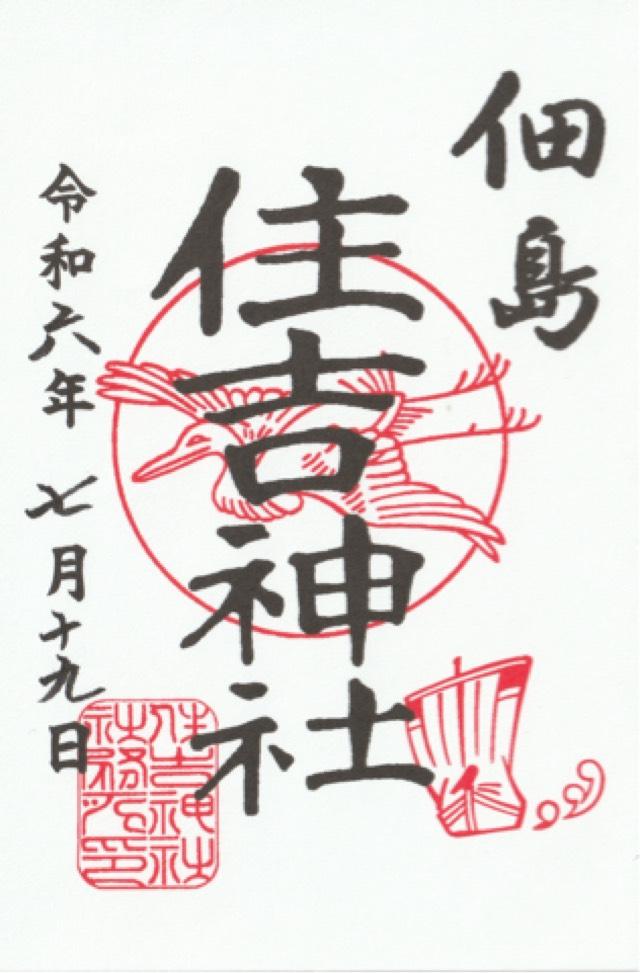 佃島
住吉神社
令和六年 七月十九日
住吉神社
社務所印